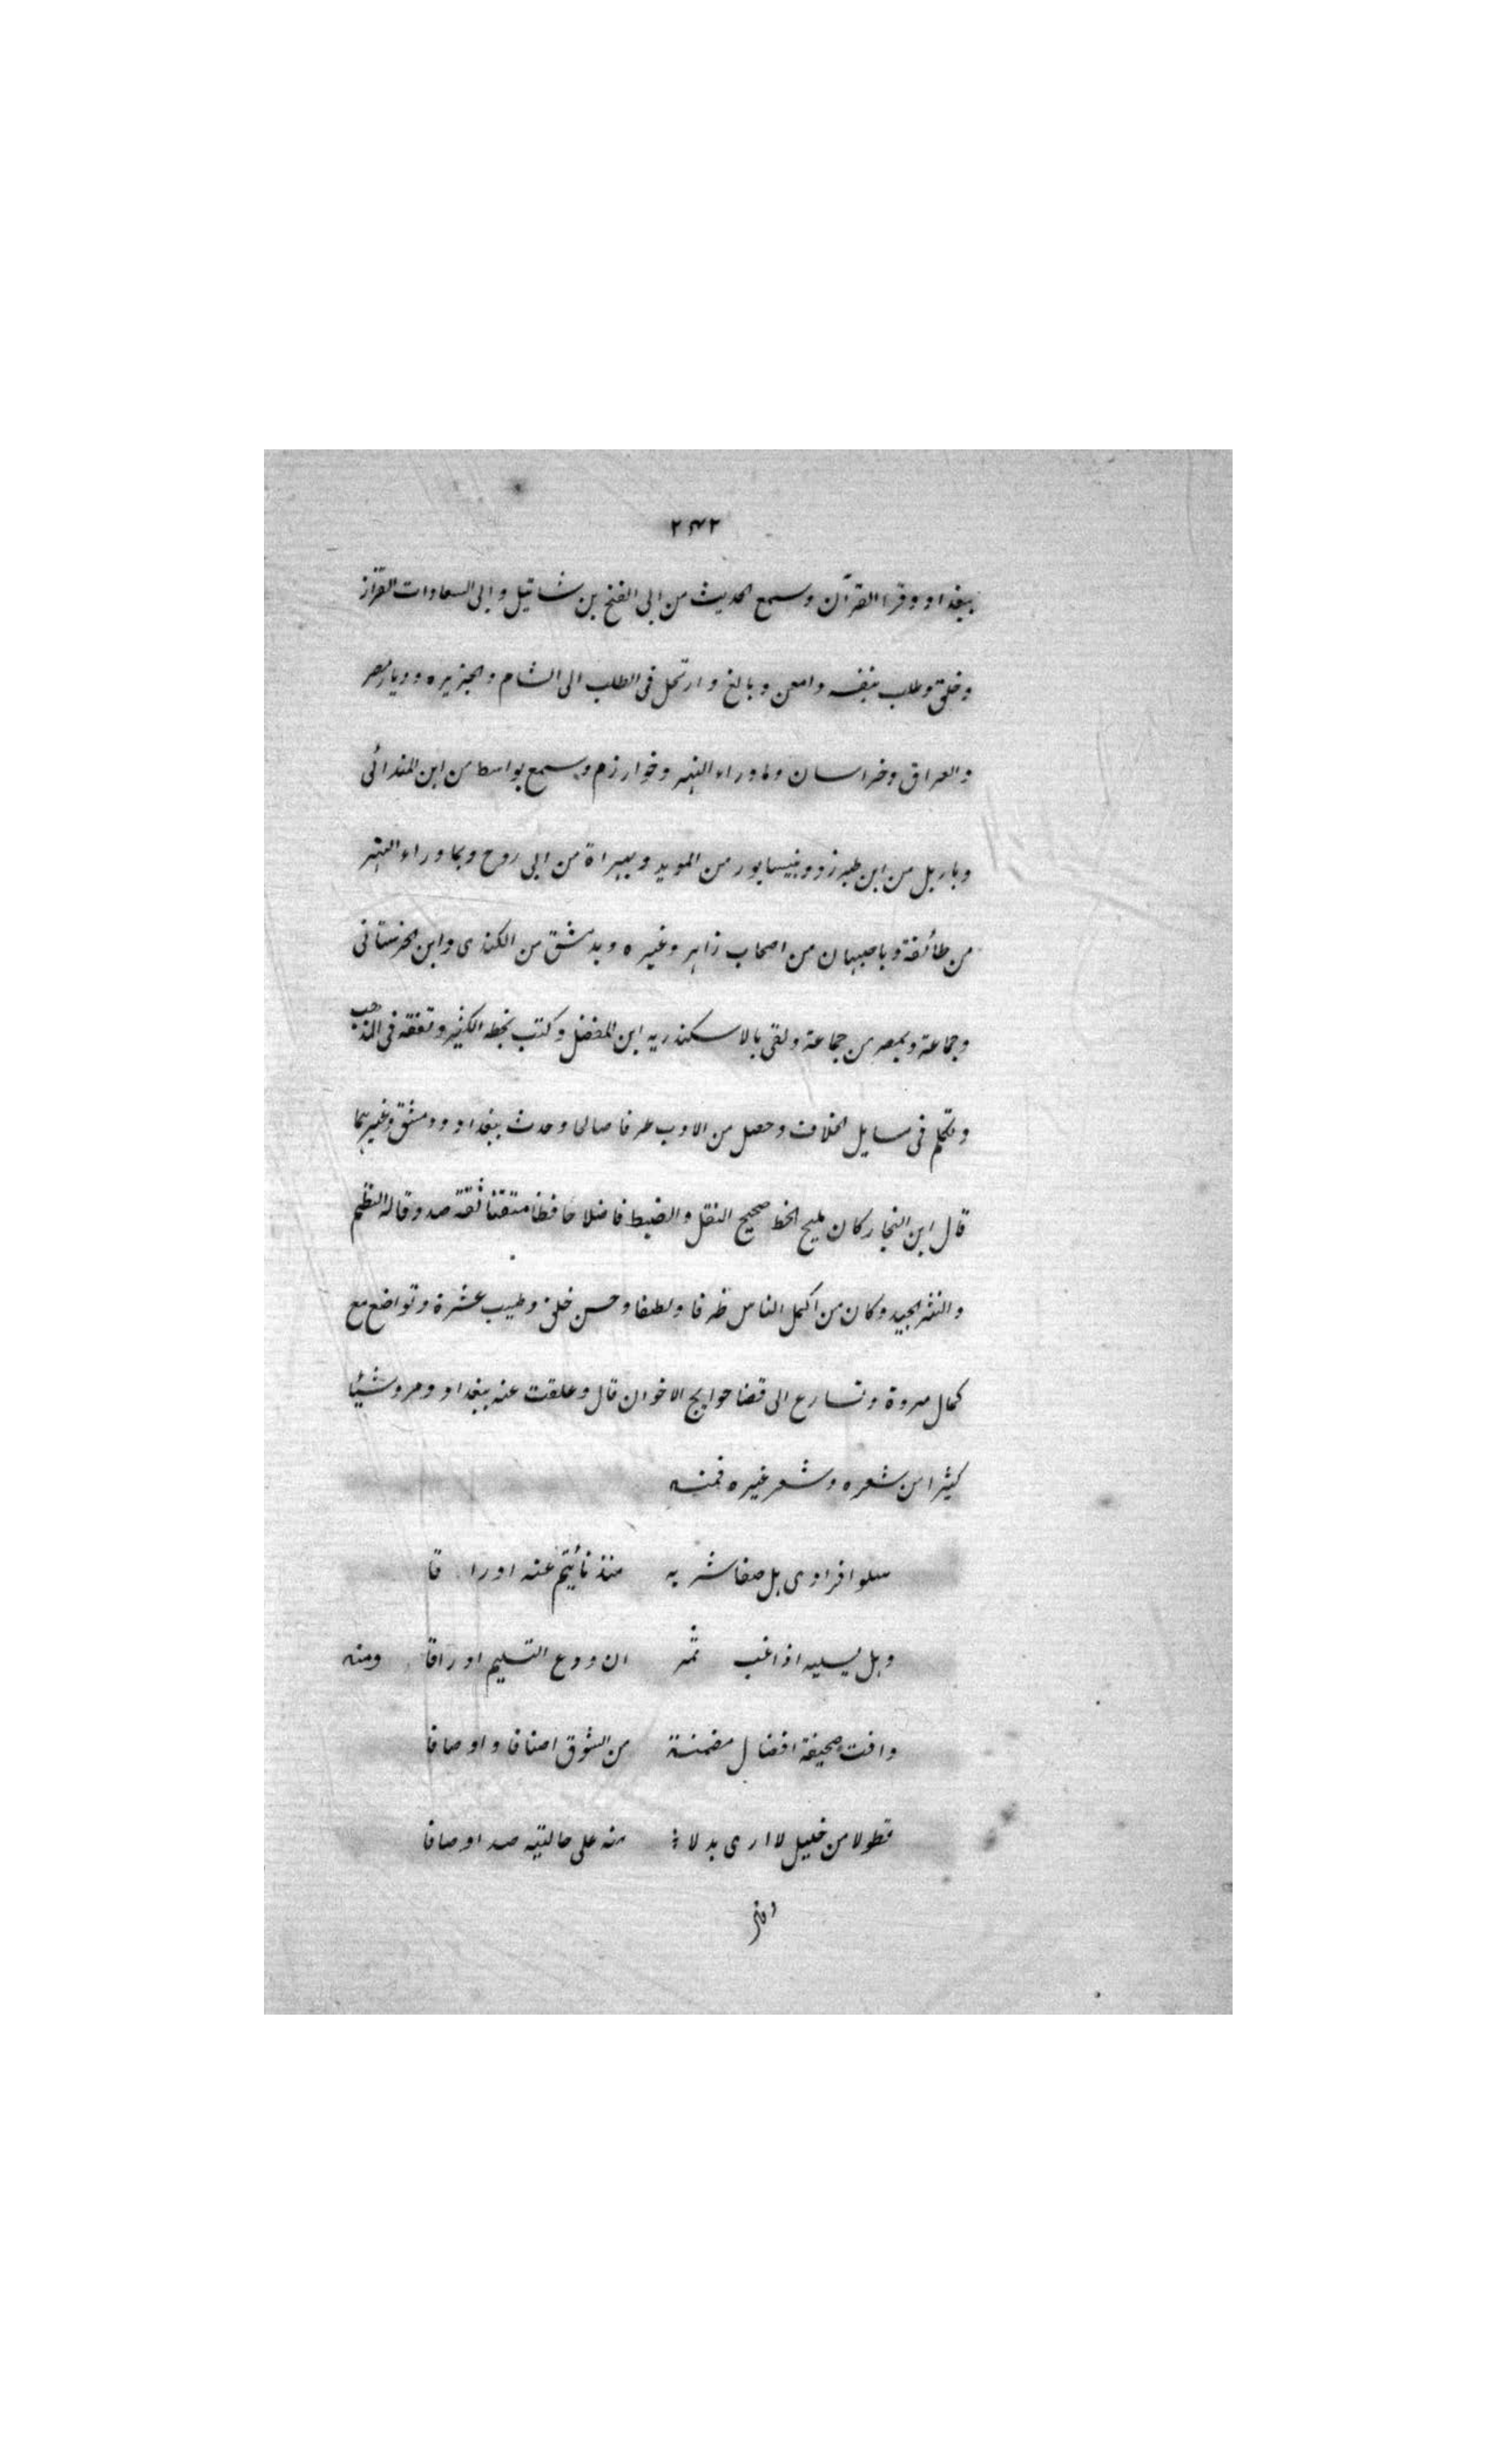 ٢٤٢
ببغداد وقرء القرآن وسمع الحديث من ابى الفتح بن شاتيل وابى السعادات القزاز
وخلق وطلب بنفسه وامعن وبالغ وارتحل فى الطلب الى الشام والجزيره وديار مصر
والعراق وخراسان وماوراء النهر وخوارزم وسمع بواسط من ابن المندائى
وباربل من ابن طبرزد وبنيسابور من المويد وبهراة من ابى روح وبماوراء النهر
من طائفة وباصبهان من اصحاب زاهر وغيره وبدمشق من الكندى وابن الحرستانى
وجماعة وبمصر من جماعة ولقى بالاسكندريه ابن المفضل وكتب بخطه الكثير وتفقه فى المذهب
وتكلم فى مسايل الخلاف وحصل من الادب طرفا صالحا وحدث ببغداد ودمشق وغيرهما
قال ابن النجار كان مليح الخط صحيح النقل والضبط فاضلا حافظا متقنا ثقة صدوقا له النظم
والنثر الجيد وكان من اكمل الناس ظرفا ولطفا وحسن خلق وطيب عشرة وتواضع مع
كمال مروة وتسارع الى قضا حوايج الاخوان قال وعلقت عنه ببغداد ومرو شيئا
كثيرا من شعره وشعر غيره فمنه
سلوا فوادى هل صفا شربه منذ نأيتم عنه او راقا
وهل يسليه اذا غبتم ان ودع التسليم اوراقا ومنه
وافت صحيفة افضال مضمنة من الشوق اصنافا واوصافا
تطولا من خليل لا ارى بدلا منه على حالتيه صد او صافا